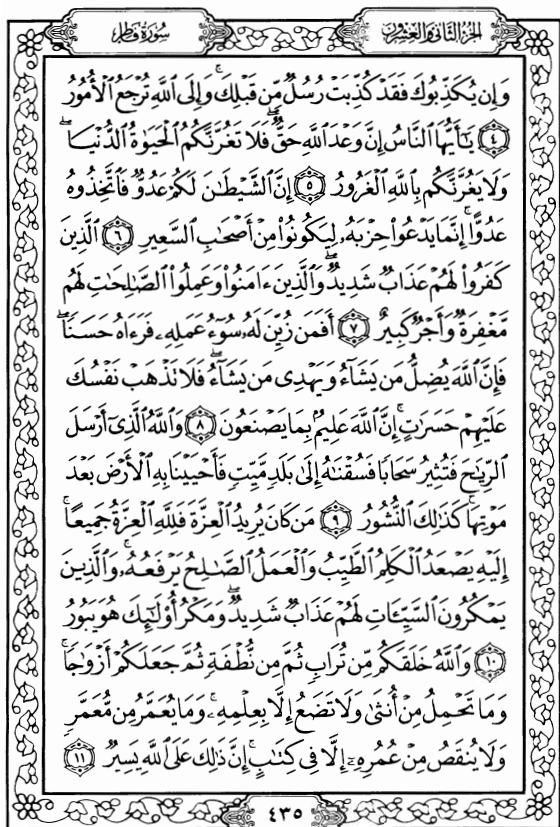 الجزء الثاني والعشرون
سورة فاطر
وَإِن يُكَذِّبُوكَ فَقَدْ كُذِّبَتْ رُسُلٌ مِّن قَبْلِكَ ۚ وَإِلَى ٱللَّهِ تُرْجَعُ ٱلْأُمُورُ
﴿٤﴾ يَٰٓأَيُّهَا ٱلنَّاسُ إِنَّ وَعْدَ ٱللَّهِ حَقٌّ ۖ فَلَا تَغُرَّنَّكُمُ ٱلْحَيَوٰةُ ٱلدُّنْيَا ۖ
وَلَا يَغُرَّنَّكُم بِٱللَّهِ ٱلْغَرُورُ ﴿٥﴾ إِنَّ ٱلشَّيْطَٰنَ لَكُمْ عَدُوٌّ فَٱتَّخِذُوهُ
عَدُوًّا ۚ إِنَّمَا يَدْعُوا۟ حِزْبَهُۥ لِيَكُونُوا۟ مِنْ أَصْحَٰبِ ٱلسَّعِيرِ ﴿٦﴾ ٱلَّذِينَ
كَفَرُوا۟ لَهُمْ عَذَابٌ شَدِيدٌ ۖ وَٱلَّذِينَ ءَامَنُوا۟ وَعَمِلُوا۟ ٱلصَّٰلِحَٰتِ لَهُم
مَّغْفِرَةٌ وَأَجْرٌ كَبِيرٌ ﴿٧﴾ أَفَمَن زُيِّنَ لَهُۥ سُوٓءُ عَمَلِهِۦ فَرَءَاهُ حَسَنًا ۖ
فَإِنَّ ٱللَّهَ يُضِلُّ مَن يَشَآءُ وَيَهْدِى مَن يَشَآءُ ۖ فَلَا تَذْهَبْ نَفْسُكَ
عَلَيْهِمْ حَسَرَٰتٍ ۚ إِنَّ ٱللَّهَ عَلِيمٌۢ بِمَا يَصْنَعُونَ ﴿٨﴾ وَٱللَّهُ ٱلَّذِىٓ أَرْسَلَ
ٱلرِّيَٰحَ فَتُثِيرُ سَحَابًا فَسُقْنَٰهُ إِلَىٰ بَلَدٍ مَّيِّتٍ فَأَحْيَيْنَا بِهِ ٱلْأَرْضَ بَعْدَ
مَوْتِهَا ۚ كَذَٰلِكَ ٱلنُّشُورُ ﴿٩﴾ مَن كَانَ يُرِيدُ ٱلْعِزَّةَ فَلِلَّهِ ٱلْعِزَّةُ جَمِيعًا ۚ
إِلَيْهِ يَصْعَدُ ٱلْكَلِمُ ٱلطَّيِّبُ وَٱلْعَمَلُ ٱلصَّٰلِحُ يَرْفَعُهُۥ ۚ وَٱلَّذِينَ
يَمْكُرُونَ ٱلسَّيِّـَٔاتِ لَهُمْ عَذَابٌ شَدِيدٌ ۖ وَمَكْرُ أُو۟لَٰٓئِكَ هُوَ يَبُورُ
﴿١٠﴾ وَٱللَّهُ خَلَقَكُم مِّن تُرَابٍ ثُمَّ مِن نُّطْفَةٍ ثُمَّ جَعَلَكُمْ أَزْوَٰجًا ۚ
وَمَا تَحْمِلُ مِنْ أُنثَىٰ وَلَا تَضَعُ إِلَّا بِعِلْمِهِۦ ۚ وَمَا يُعَمَّرُ مِن مُّعَمَّرٍ
وَلَا يُنقَصُ مِنْ عُمُرِهِۦٓ إِلَّا فِى كِتَٰبٍ ۚ إِنَّ ذَٰلِكَ عَلَى ٱللَّهِ يَسِيرٌ ﴿١١﴾
٤٣٥